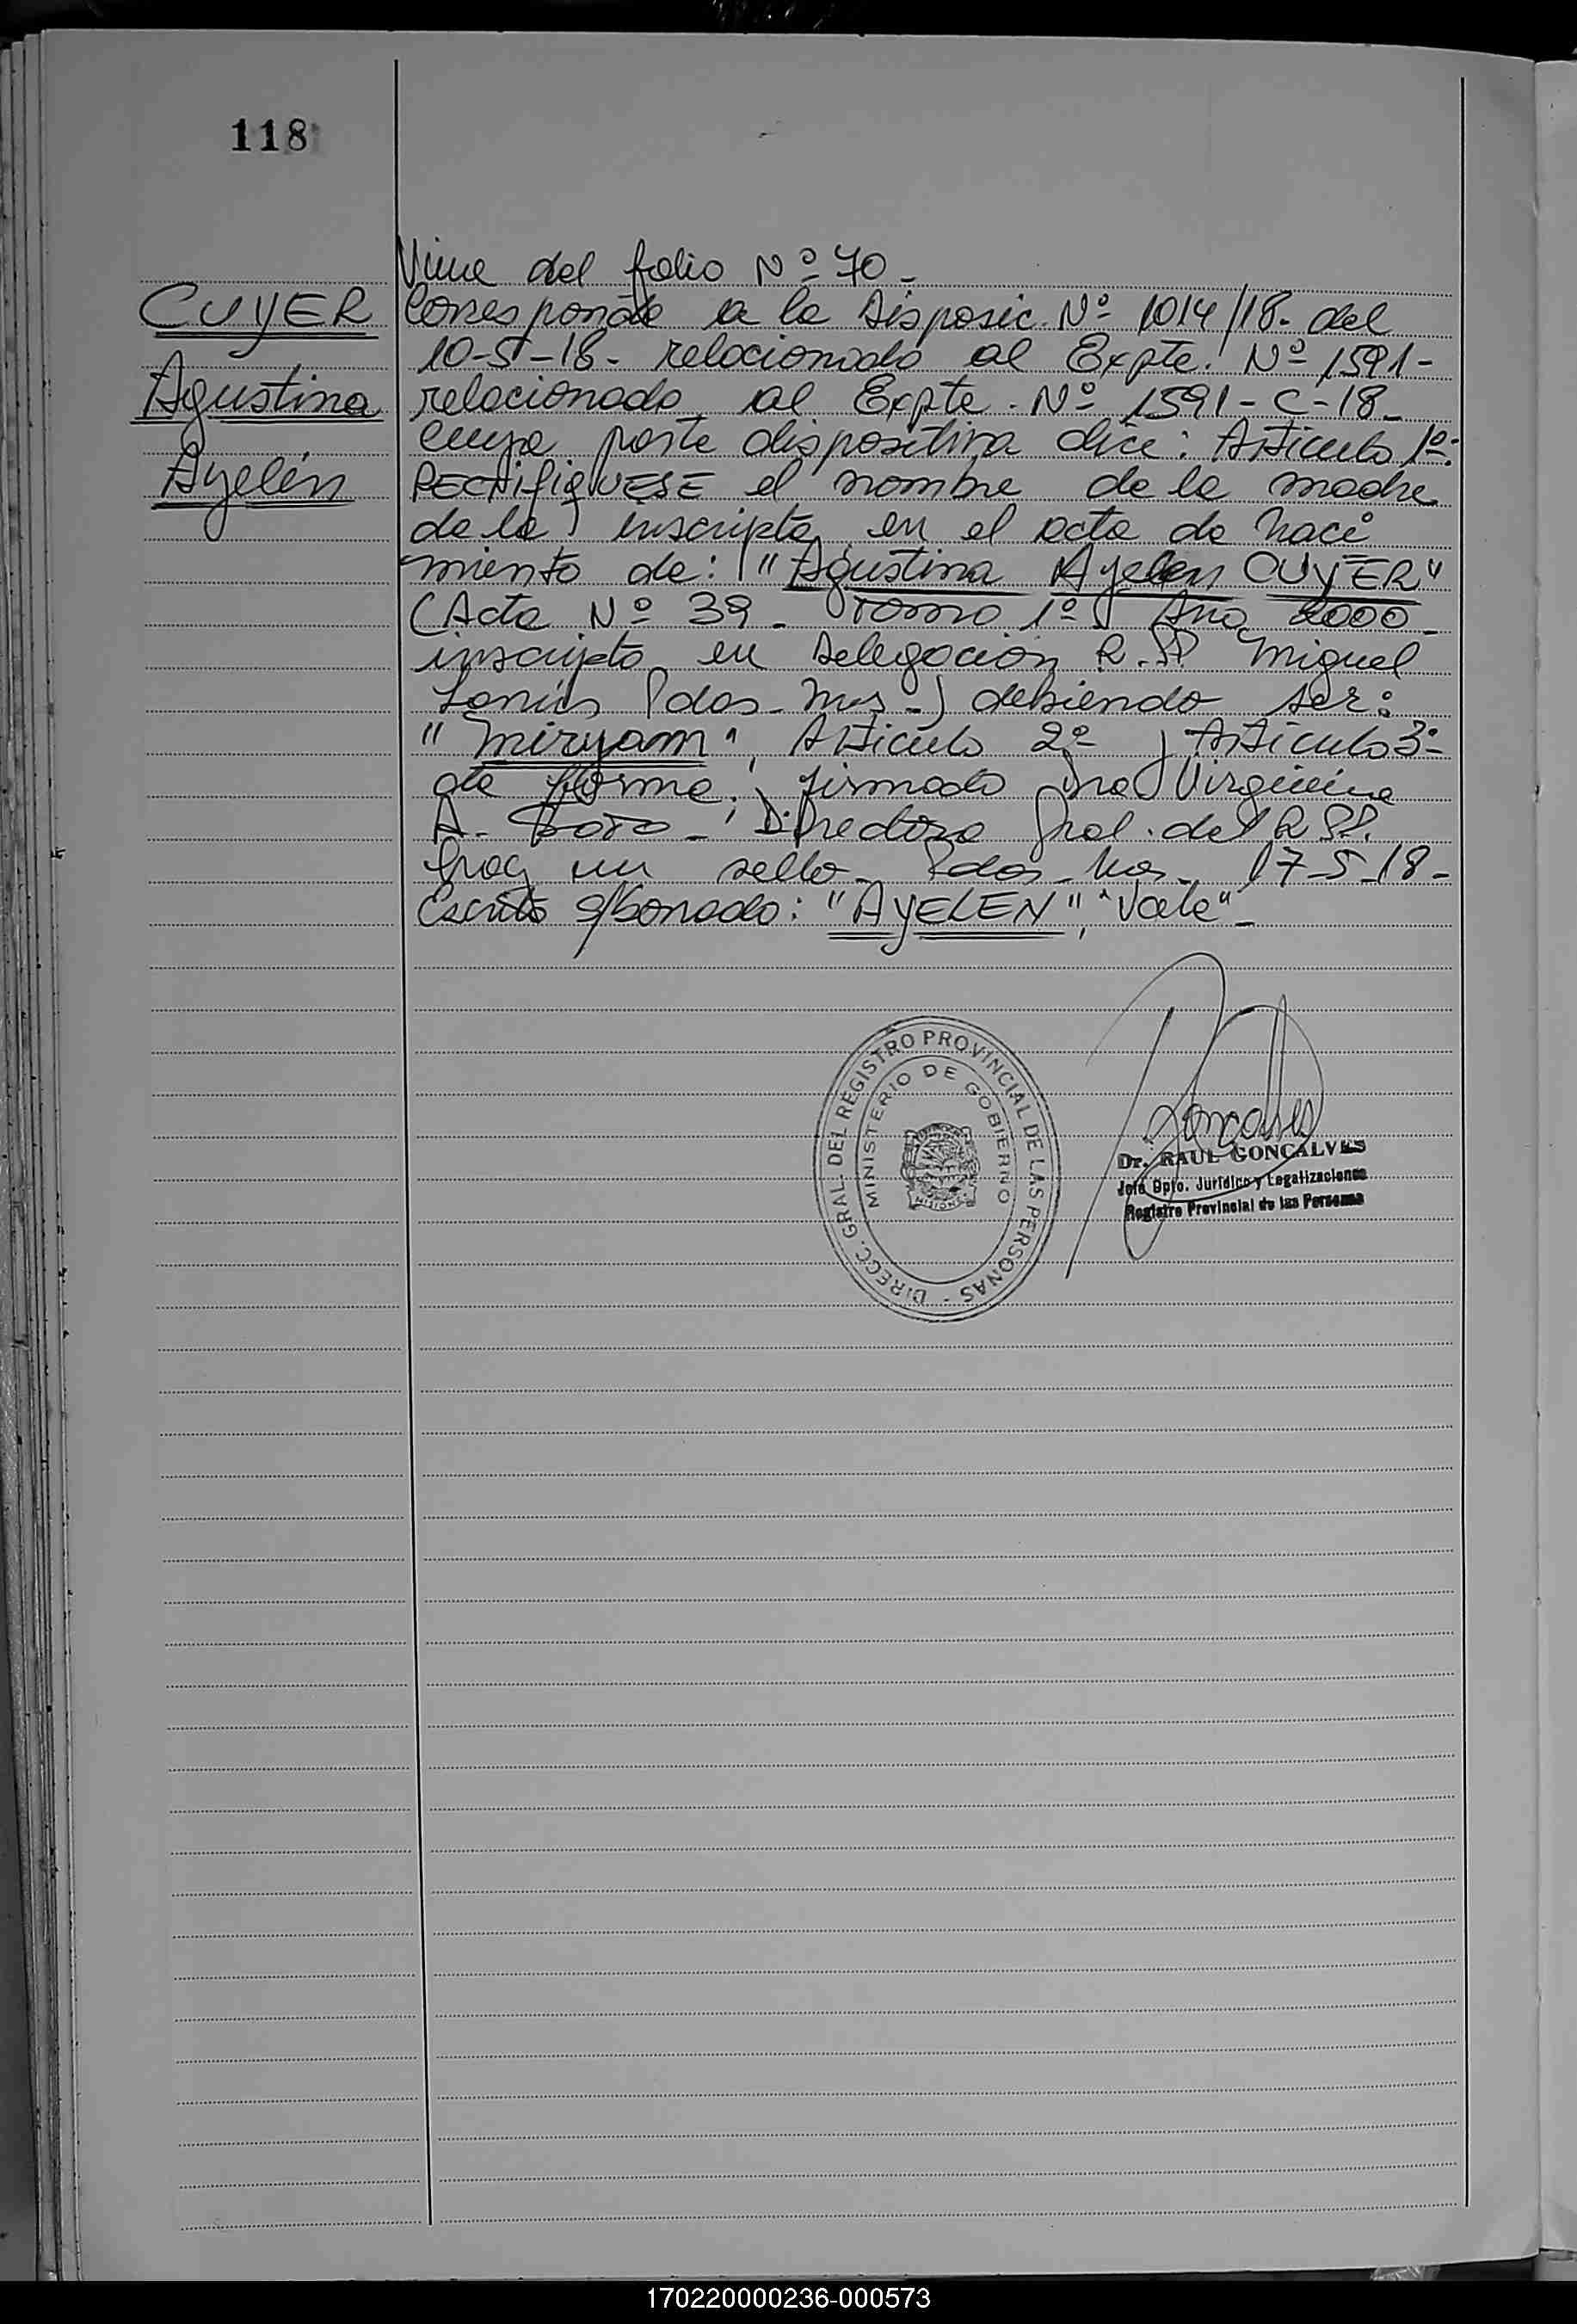 118
Viene del folio Nº 70-
CUYER
Corresponde a la Disposic. Nº 1014/18- del
10-5-18- relacionado al Expte. Nº 1591-
Agustina
relacionado al Expte. Nº 1591-C-18-
cuya parte dispositiva dice: Artículo 1º:
Ayelén
RECTIFIQUESE el nombre de la madre
de la inscripta en el acta de naci
miento de: "Agustina Ayelen CUYER"
(Acta Nº 39- Tomo 1º Año 2000-
inscripta en Delegación R.P.P Miguel
Lanús Pdas- Mnes-) debiendo ser:
"Miryam" Artículo 2º y Artículo 3º
de forma. firmado Dra Virginia
A. Directora Gral. del R.P.P.
hay un sello- Pdas- Mnes- 17-5-18-
Escrito s/borrado: "AYELEN", "Vale"-
DIRECC. GRAL. DEL REGISTRO PROVINCIAL DE LAS PERSONAS -
MINISTERIO DE GOBIERNO
MISIONES
Goncalves
Dr. RAUL GONCALVES
Jefe Dpto. Jurídico y Legalizaciones
Registro Provincial de las Personas
170220000236-000573